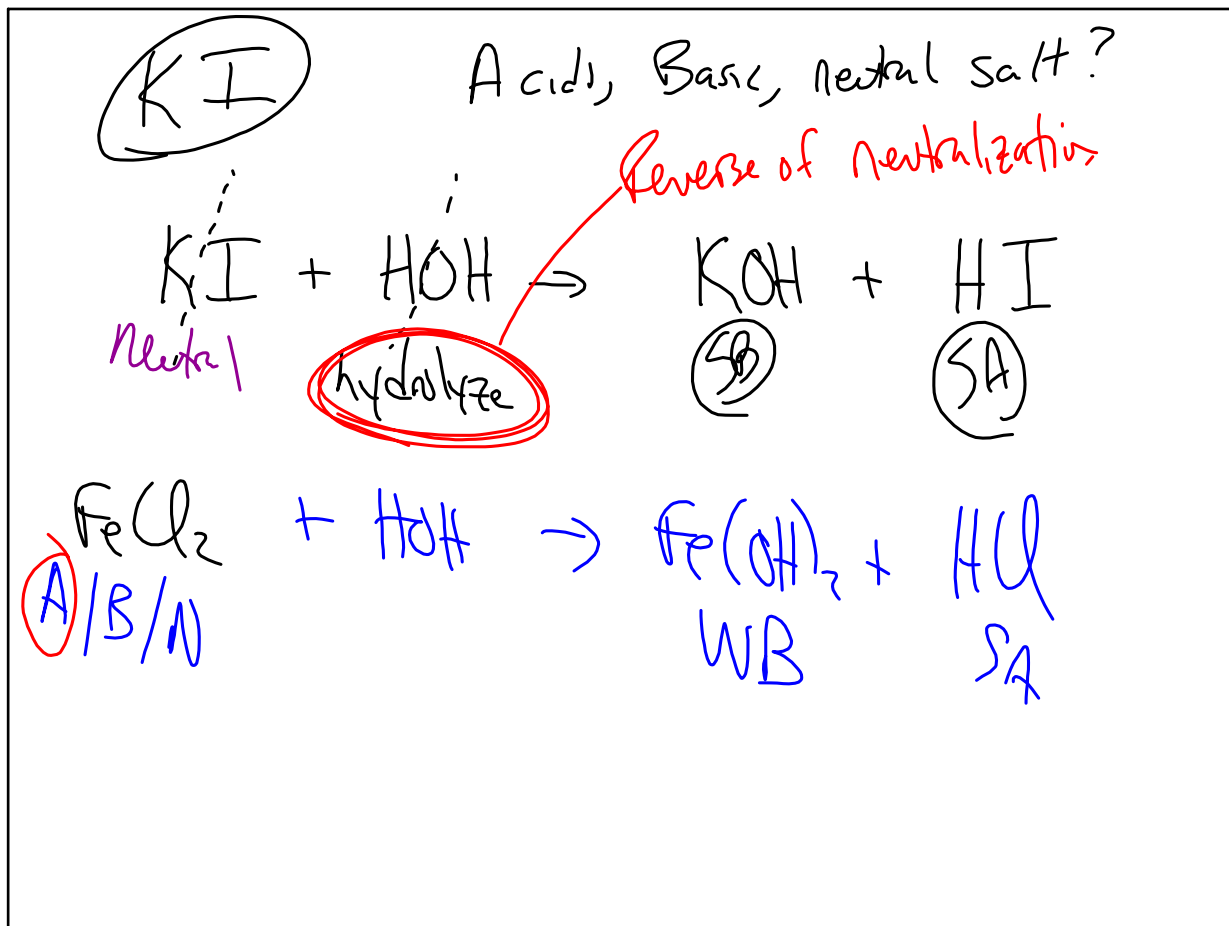 KI Acids, Basic, neutral salt?
Reverse of neutralization
KI + HOH → KOH + HI
Neutral hydrolyze SB SA
FeCl₂ + HOH → Fe(OH)₂ + HCl
A/B/N WB SA